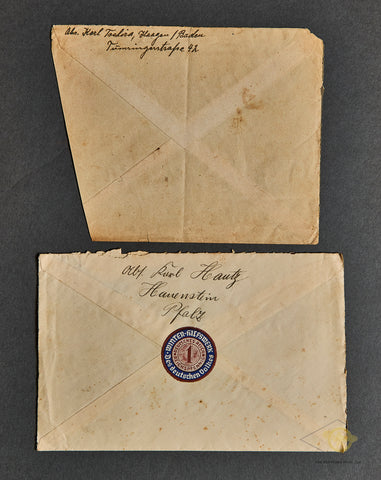 Abs. Karl Haagen / Baden
Tumringerstraße
Abs. Karl Hautz
Hauenstein
Pfalz
WINTER-HILFSWERK
des Deutschen Volkes
1